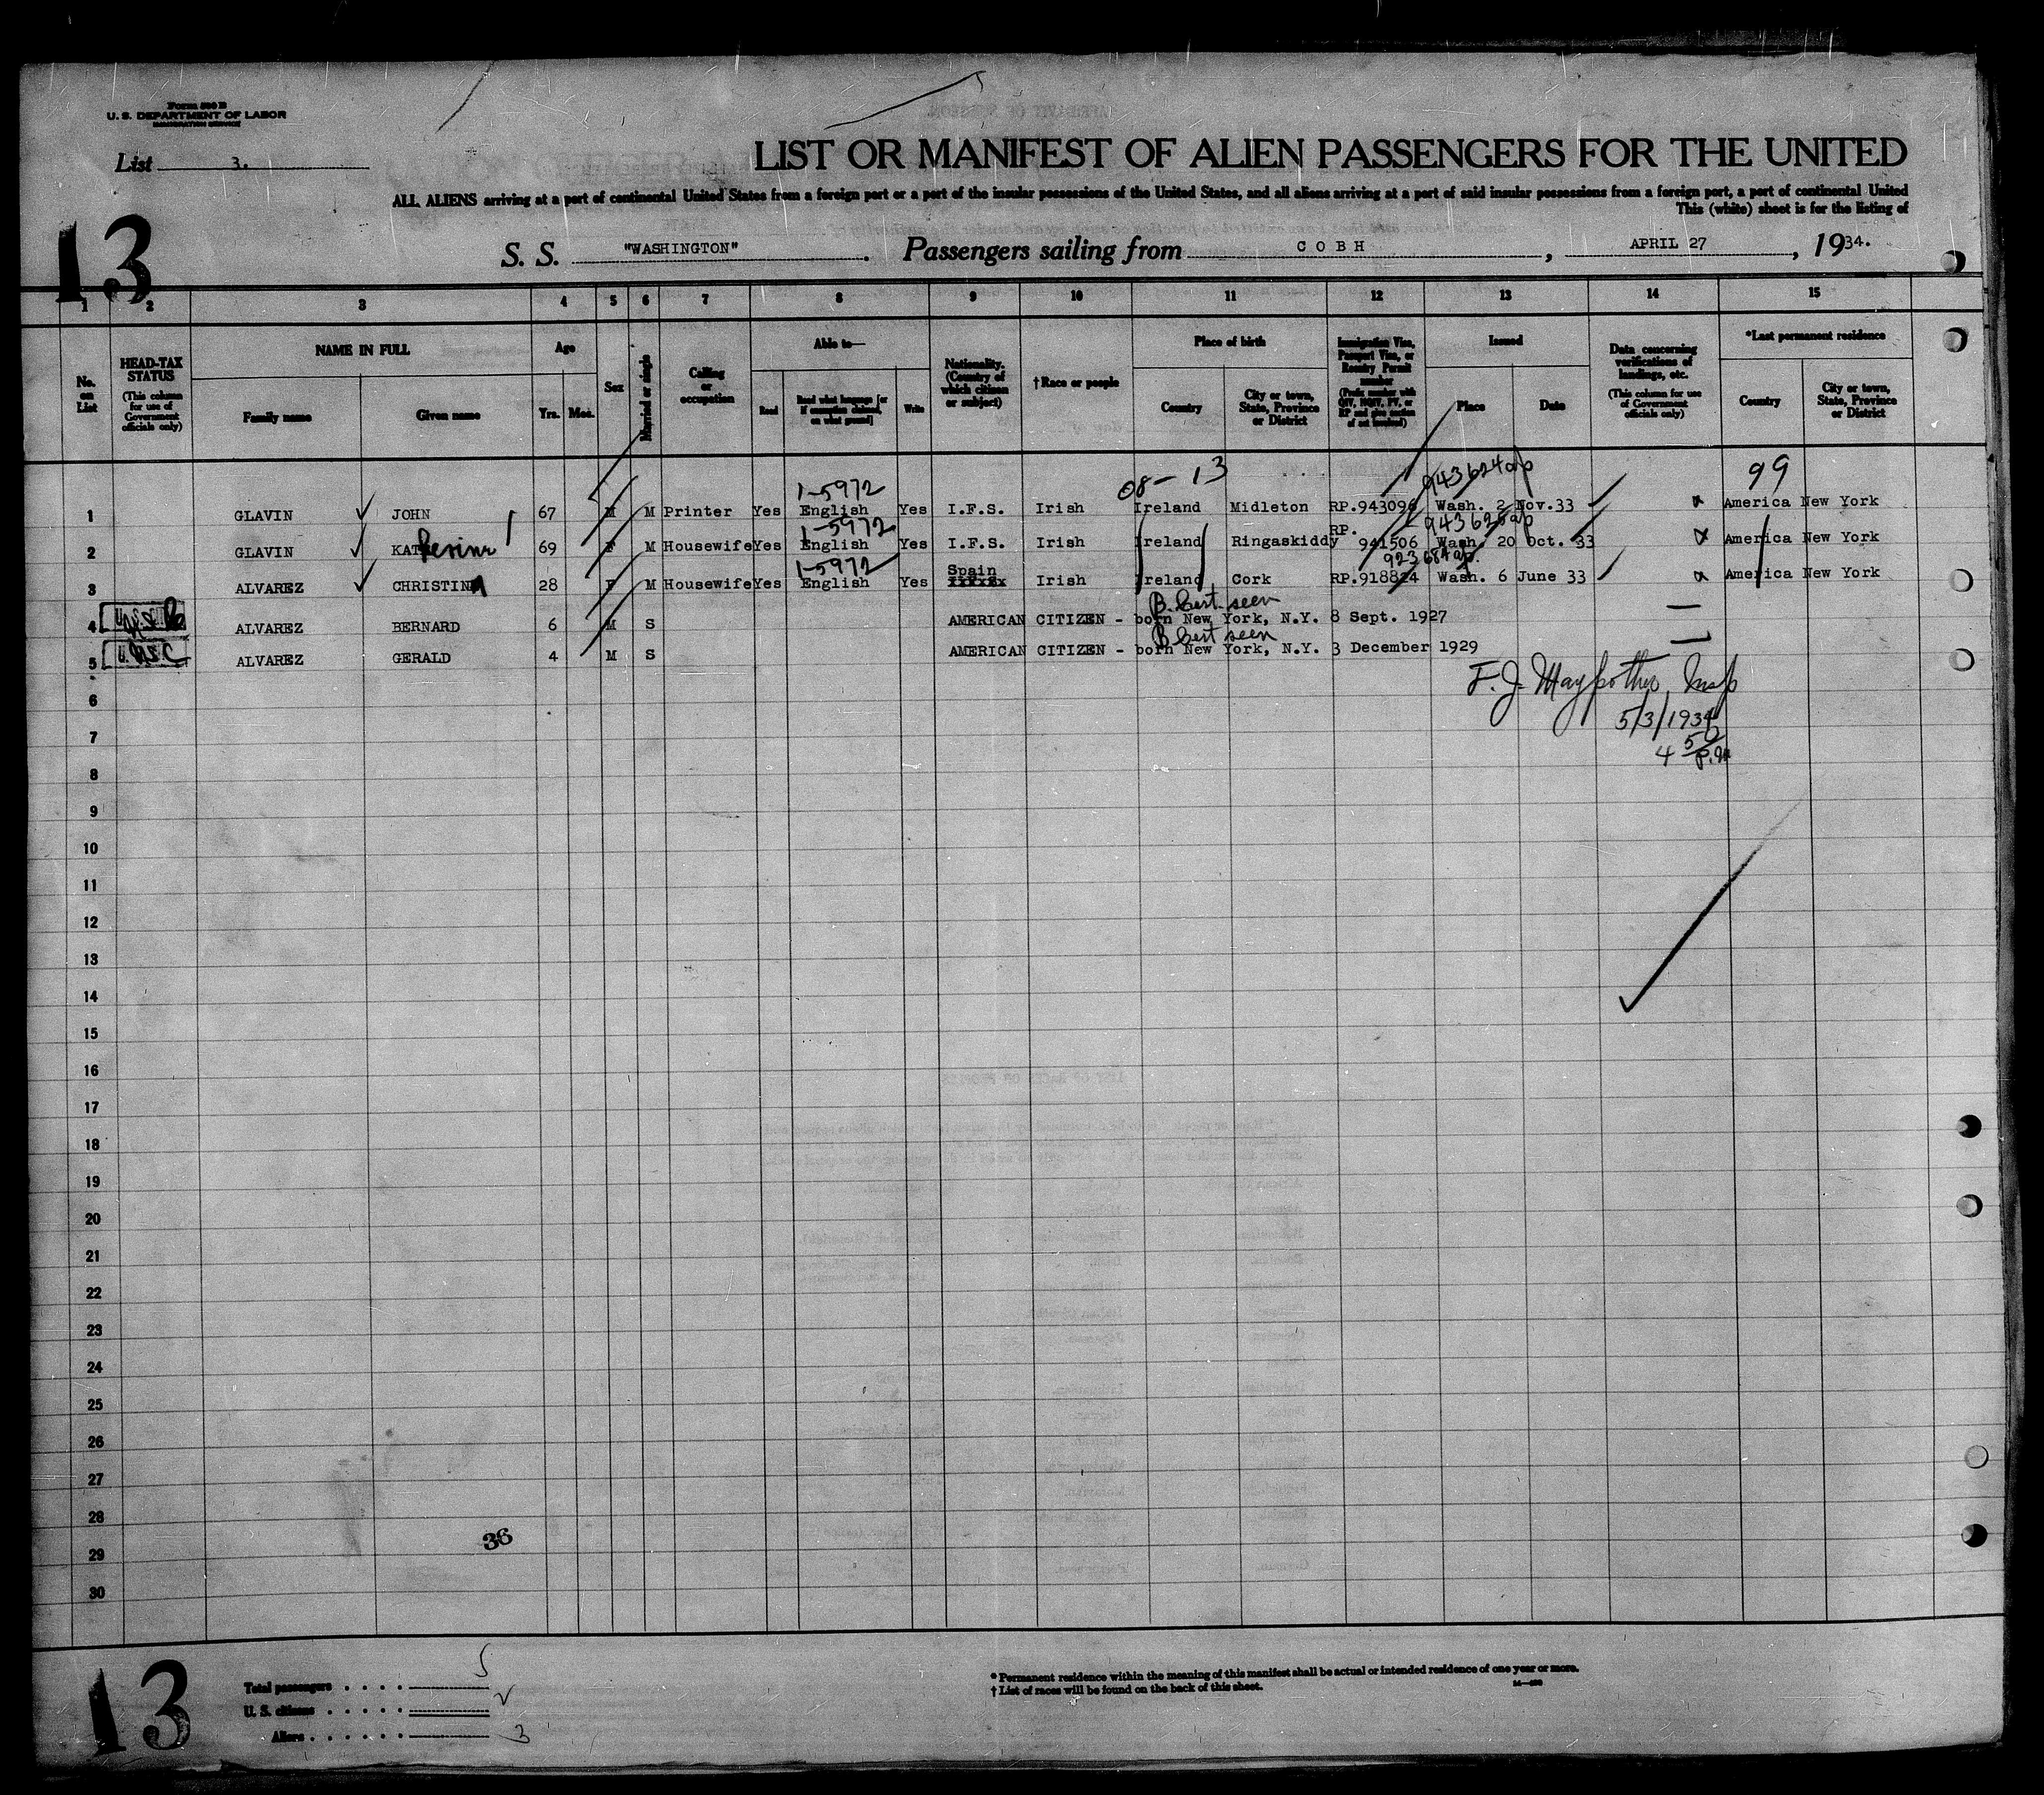 Form 500 B
U. S. DEPARTMENT OF LABOR
IMMIGRATION SERVICE
List 3.
LIST OR MANIFEST OF ALIEN PASSENGERS FOR THE UNITED
ALL ALIENS arriving at a port of continental United States from a foreign port or a port of the insular possessions of the United States, and all aliens arriving at a port of said insular possessions from a foreign port, a port of continental United
This (white) sheet is for the listing of
13
S. S. "WASHINGTON". Passengers sailing from COBH, APRIL 27, 1934.
1 2 3 4 5 6 7 8 9 10 11 12 13 14 15
No. on List
HEAD-TAX STATUS (This column for use of Government officials only)
NAME IN FULL Family name Given name
Age Yrs. Mos.
Sex
Married or single
Calling or occupation
Able to— Read Read what language [or if exemption claimed, on what ground] Write
Nationality. (Country of which citizen or subject)
†Race or people
Place of birth Country City or town, State, Province or District
Immigration Visa, Passport Visa, or Reentry Permit number (Prefix number with QIV, NQIV, PV, or RP and give section of act involved)
Issued Place Date
Data concerning verifications of landings, etc. (This column for use of Government officials only)
*Last permanent residence Country City or town, State, Province or District
1-5972 08-13 943624 99
1 GLAVIN JOHN 67 M M Printer Yes English Yes I.F.S. Irish Ireland Midleton RP.943096 Wash. 2 Nov.33 America New York
1-5972 943625
2 GLAVIN KATherine 69 F M Housewife Yes English Yes I.F.S. Irish Ireland Ringaskiddy RP. 941506 Wash. 20 Oct. 33 America New York
1-5972 923684
3 ALVAREZ CHRISTINA 28 F M Housewife Yes English Yes Spain Irish Ireland Cork RP.918824 Wash. 6 June 33 America New York
B. Cert. seen
4 ALVAREZ BERNARD 6 M S AMERICAN CITIZEN - born New York, N.Y. 8 Sept. 1927
B Cert seen
5 U.S.C ALVAREZ GERALD 4 M S AMERICAN CITIZEN - born New York, N.Y. 3 December 1929
F. J. Maypother, Insp
6
5/3/1934
7
4 50 P.M
8
9
10
11
12
13
14
15
16
17
18
19
20
21
22
23
24
25
26
27
28
36
29
30
13
Total passengers 5
U. S. citizens 2
Aliens 3
* Permanent residence within the meaning of this manifest shall be actual or intended residence of one year or more.
† List of races will be found on the back of this sheet.